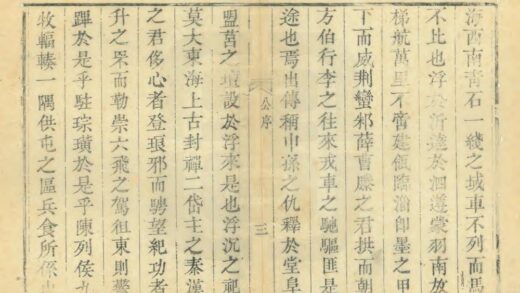 海西南青石一綫之域車不列而馬
不比也浮於沂達於泗遵蒙羽南故
梯航萬里不啻建瓴臨淄即墨之甲
下而威荆蠻邾薛曹滕之君拱而朝
方伯行李之往來戎車之馳驅匪是
途也焉出傳稱申孫之仇釋於堂阜
公序
三
盟莒之壇設於浮來是也浮沉之祀
莫大東海上古封禪二岱主之秦漢
之君侈心者登琅邪而騁望紀功者
升之罘而勒崇六飛之駕徂東則警
蹕於是乎駐琮璜於是乎陳列侯
牧輻輳一隅供屯之區兵食所係